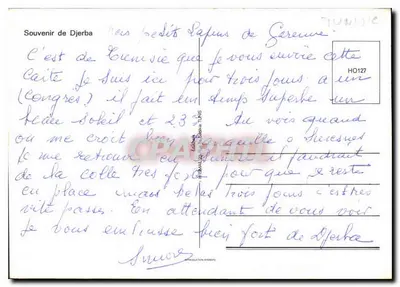 TUNISIE
Souvenir de Djerba
petits Lapins de
C'est de Tunisie que je vous envoie cette
Carte je suis ici pour trois jours a un
(Congrès) il fait un temps superbe un
beau soleil et 23° Tu vois quand
on me croit a Suresnes
je me retrouve en Tunisie il faudrait
de la colle tres forte pour que je reste
en place mais helas trois jours c'est très
vite passe. En attendant de vous voir
je vous embrasse bien fort de Djerba
HO127